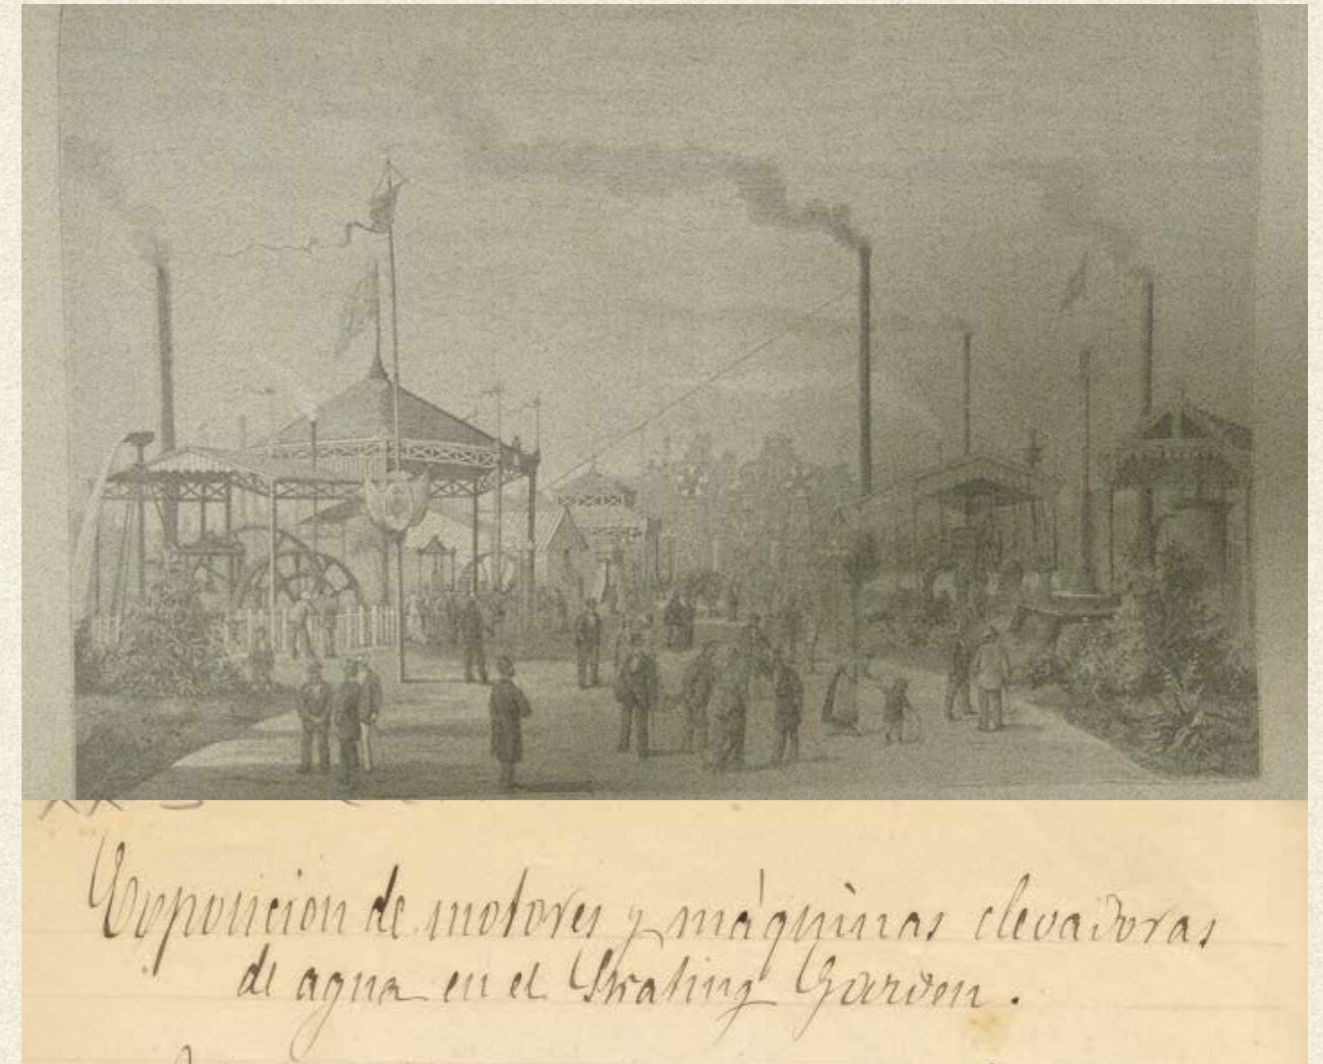 Exposicion de motores y máquinas elevadoras
de agua en el Skating Garden.